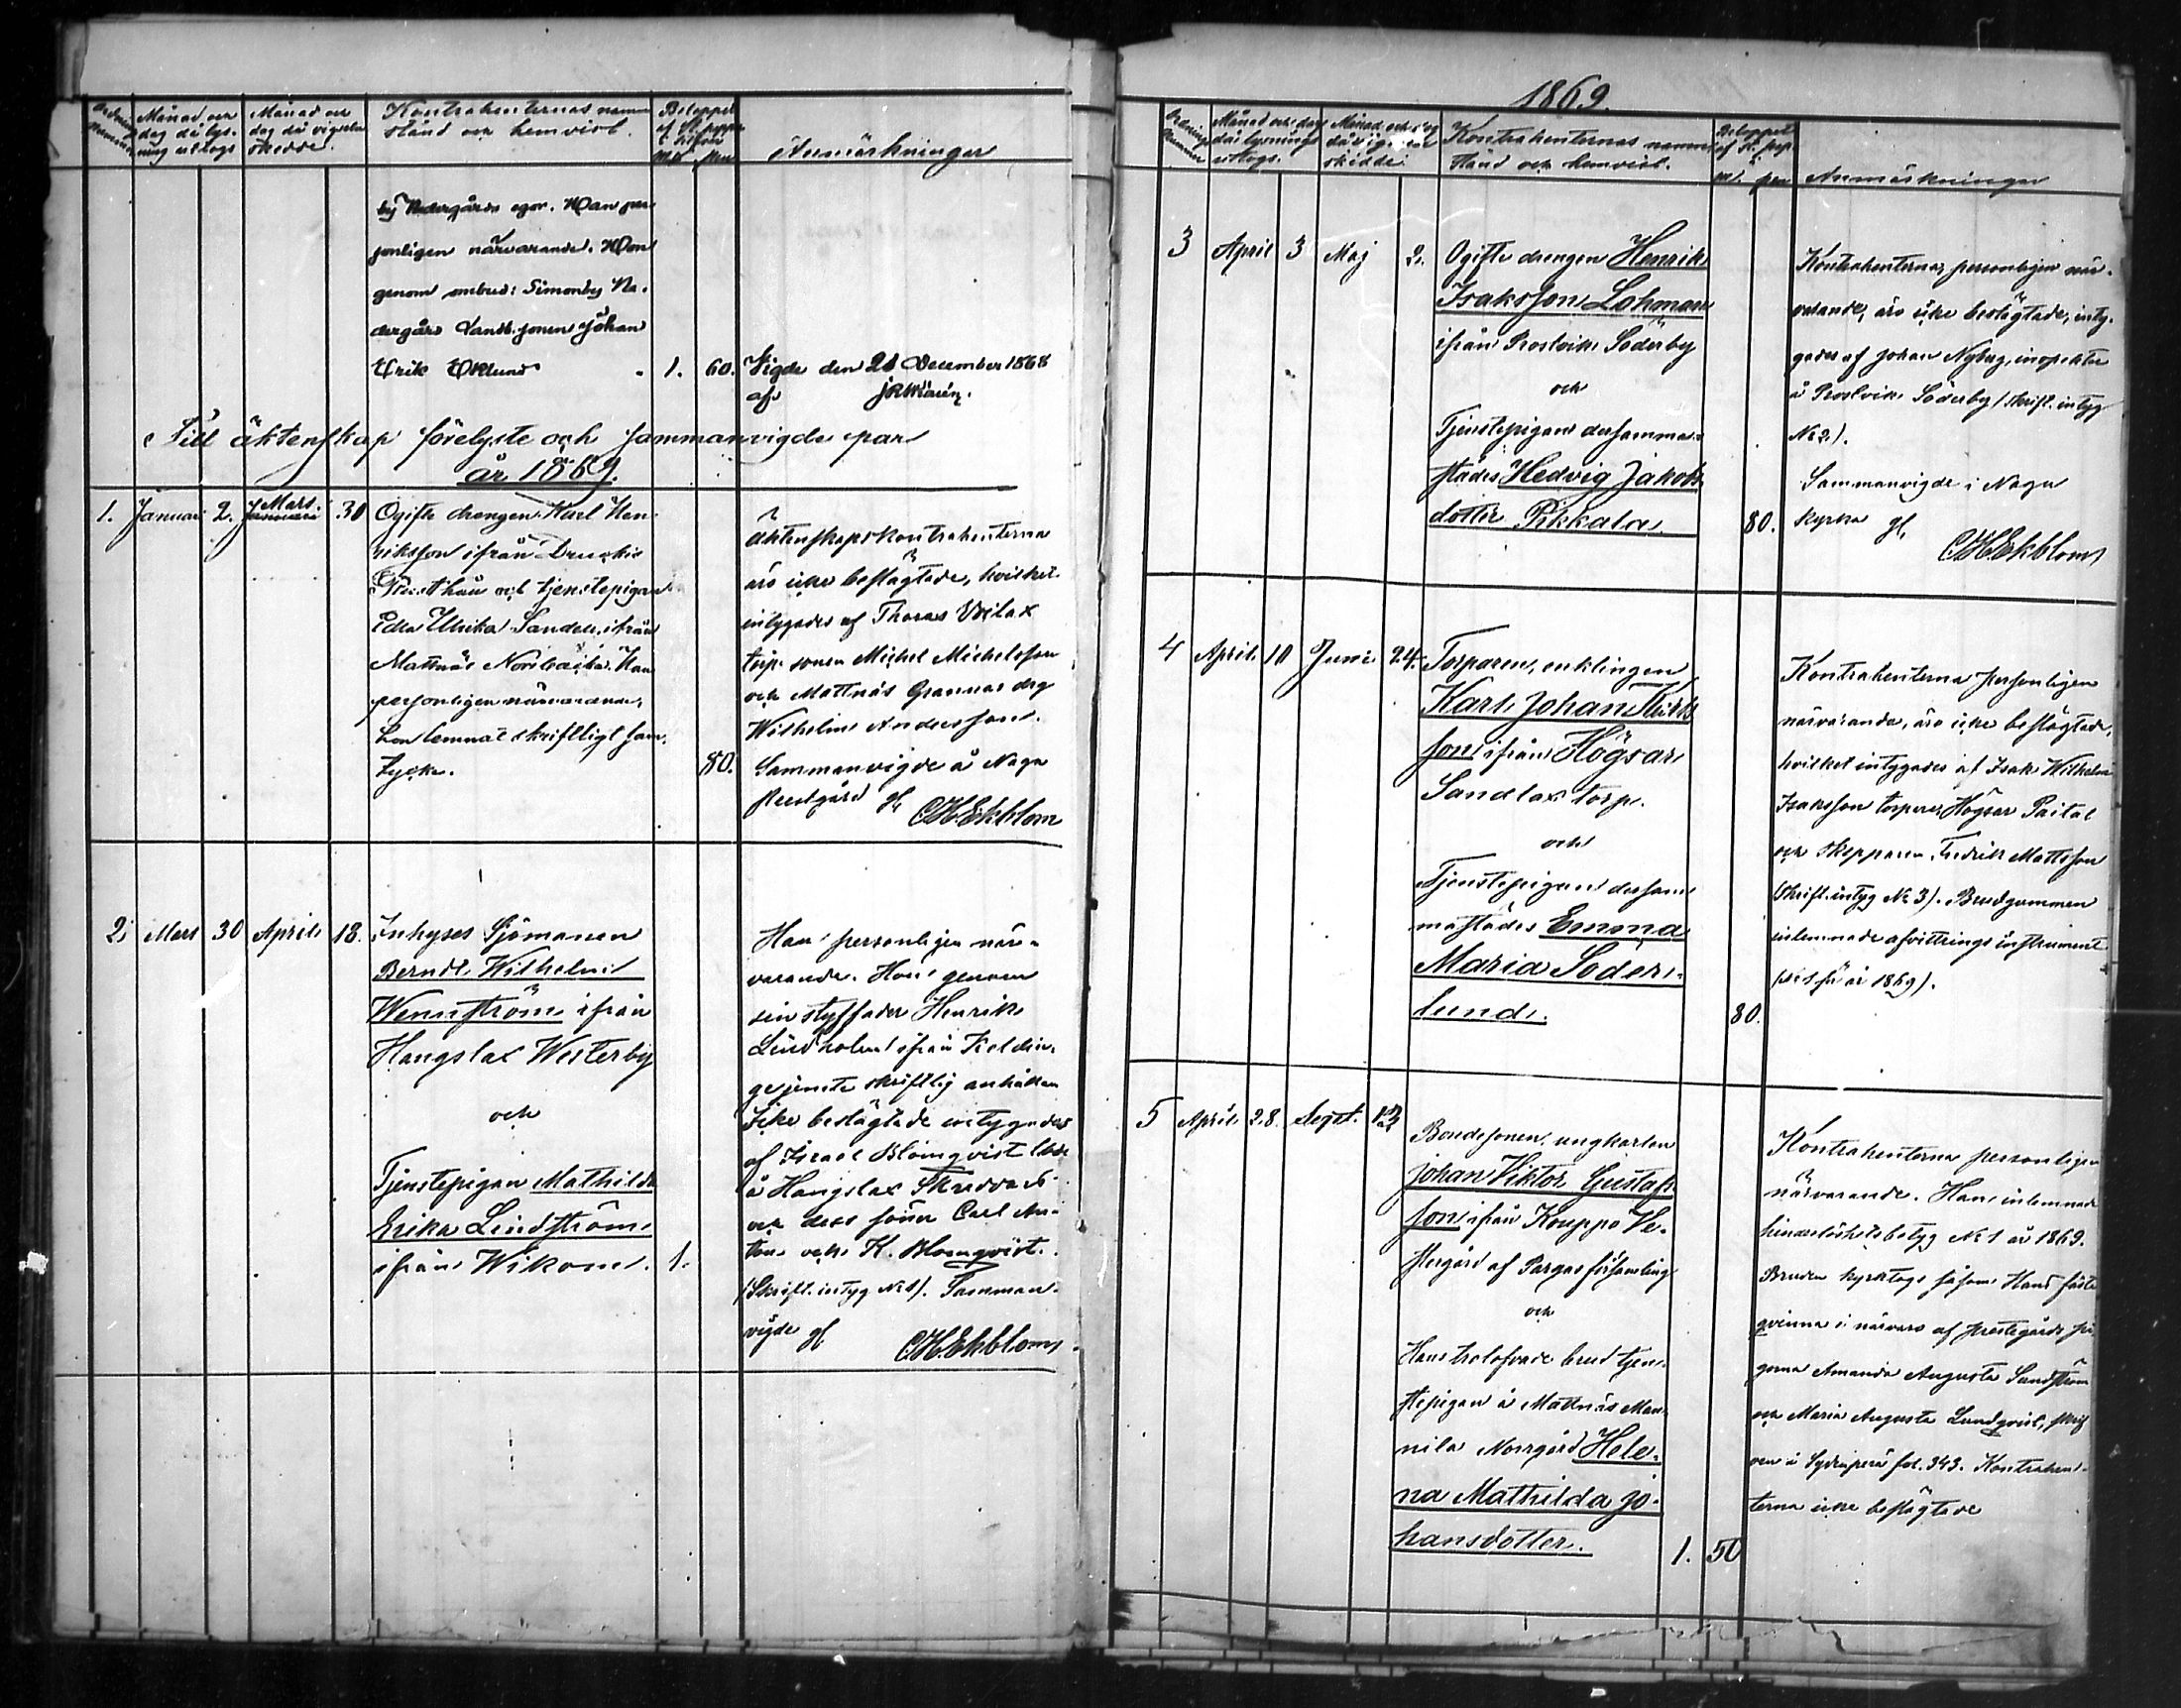 Ordnings Nummer
Månad och dag då lysning uttogs
Månad och dag då vigseln skedde.
Kontrahenternas namn stånd och hemvist.
Beloppet af
Mk pen
Anmärkningar
by Nedergårds egor. Han per-
sonligen närvarande. Hon
genom ombud: Simonby Ne-
dergårds Landb.sonen Johan
Erik Öklund 1. 60.
Vigde den 26 December 1868
af
Till äktenskap förelyste och sammanvigde par
år 1869.
1. Januari 2. Mars 30
Ogifte drengen Karl Hen-
riksson ifrån
Prostvik och tjenstepigan
Edla Ulrika Sandell, ifrån
Mattnäs Norrbacka. Han
personligen närvarande,
hon lemnat skriftligt sam-
tycke. 80.
Äktenskapskontrahenterna
äro icke beslägtade, hvilket
intygades af Thomas
torp. sonen Michel Michelsson
och Mattnäs Grannas drg
Wilhelm Andersson.
Sammanvigde å Nagu
Prestgård af
C.H. Ekblom
2. Mars 30 April 18.
Inhyses Sjömannen
Berndt Wilhelm
Wennström ifrån
Hangslax Westerby
och
Tjenstepigan Mathilda
Erika Lindström
ifrån Wikom. 1.
Han personligen när-
varande. Hon genom
sin styffader Henrik
Lindholm ifrån Keldin-
ge jemte skriftlig anhållan
Icke beslägtade intygades
af Israel Blomqvist
å Hangslax Skreddars
och dess söner Carl An-
ton och K. Blomqvist.
(Skrift. intyg No 1). Samman-
vigde af
C.H. Ekblom
1869
Ordnings Nummer
Månad och dag då lysning uttogs.
Månad och dag då vigseln skedde
Kontrahenternas namn stånd och hemvist.
Beloppet af
m. pen
Anmärkningar
3 April 3 Maj 2.
Ogifte drengen Henrik
Isaksson Lohman
ifrån Prostvik Söderby
och
Tjenstepigan dersamma-
städes Hedvig Jakobs
dotter Pikkala. 80.
Kontrahenterna, personligen när-
varande, äro icke beslägtade, inty-
gades af Johan Nyberg, inspektor
å Prostvik Söderby (skrift. intyg
No 2).
Sammanvigde i Nagu
kyrka af
C.H. Ekblom
4 April 10 Juni 24.
Torparen, enklingen
Karl Johan
son ifrån Högsar
Sandlax torp.
och
Tjenstepigan dersam-
mastädes Emma
Maria Söder-
lund. 80.
Kontrahenterna personligen
närvarande, äro icke beslägtade,
hvilket intygades af Isak Wilhelm
Isaksson torparen Högsar
och skepparen Fredrik Mattsson
(skrift. intyg No 3). Brudgummen
inlemnade afvittrings instrument
för år 1869).
5 April 28. Sept.
Bondesonen, ungkarlen
Johan Viktor Gustafs
son ifrån Kouppo Ve-
stergård af Pargas församling
och
Hans trolofvade brud tjen-
stepigan å Mattnäs Man-
nila Norrgård Hele-
na Mathilda Jo-
hansdotter. 1. 50
Kontrahenterna personligen
närvarande. Han inlemnade
hinderlöshetsbetyg No 1 år 1869.
Bruden kyrktogs såsom Hans fäste
qvinna i närvaro af prestegårds pi
gorna Amanda Augusta Sundström
och Maria Augusta Lundqvist, skrif
ven i fol. 343. Kontrahen-
terna icke beslägtade